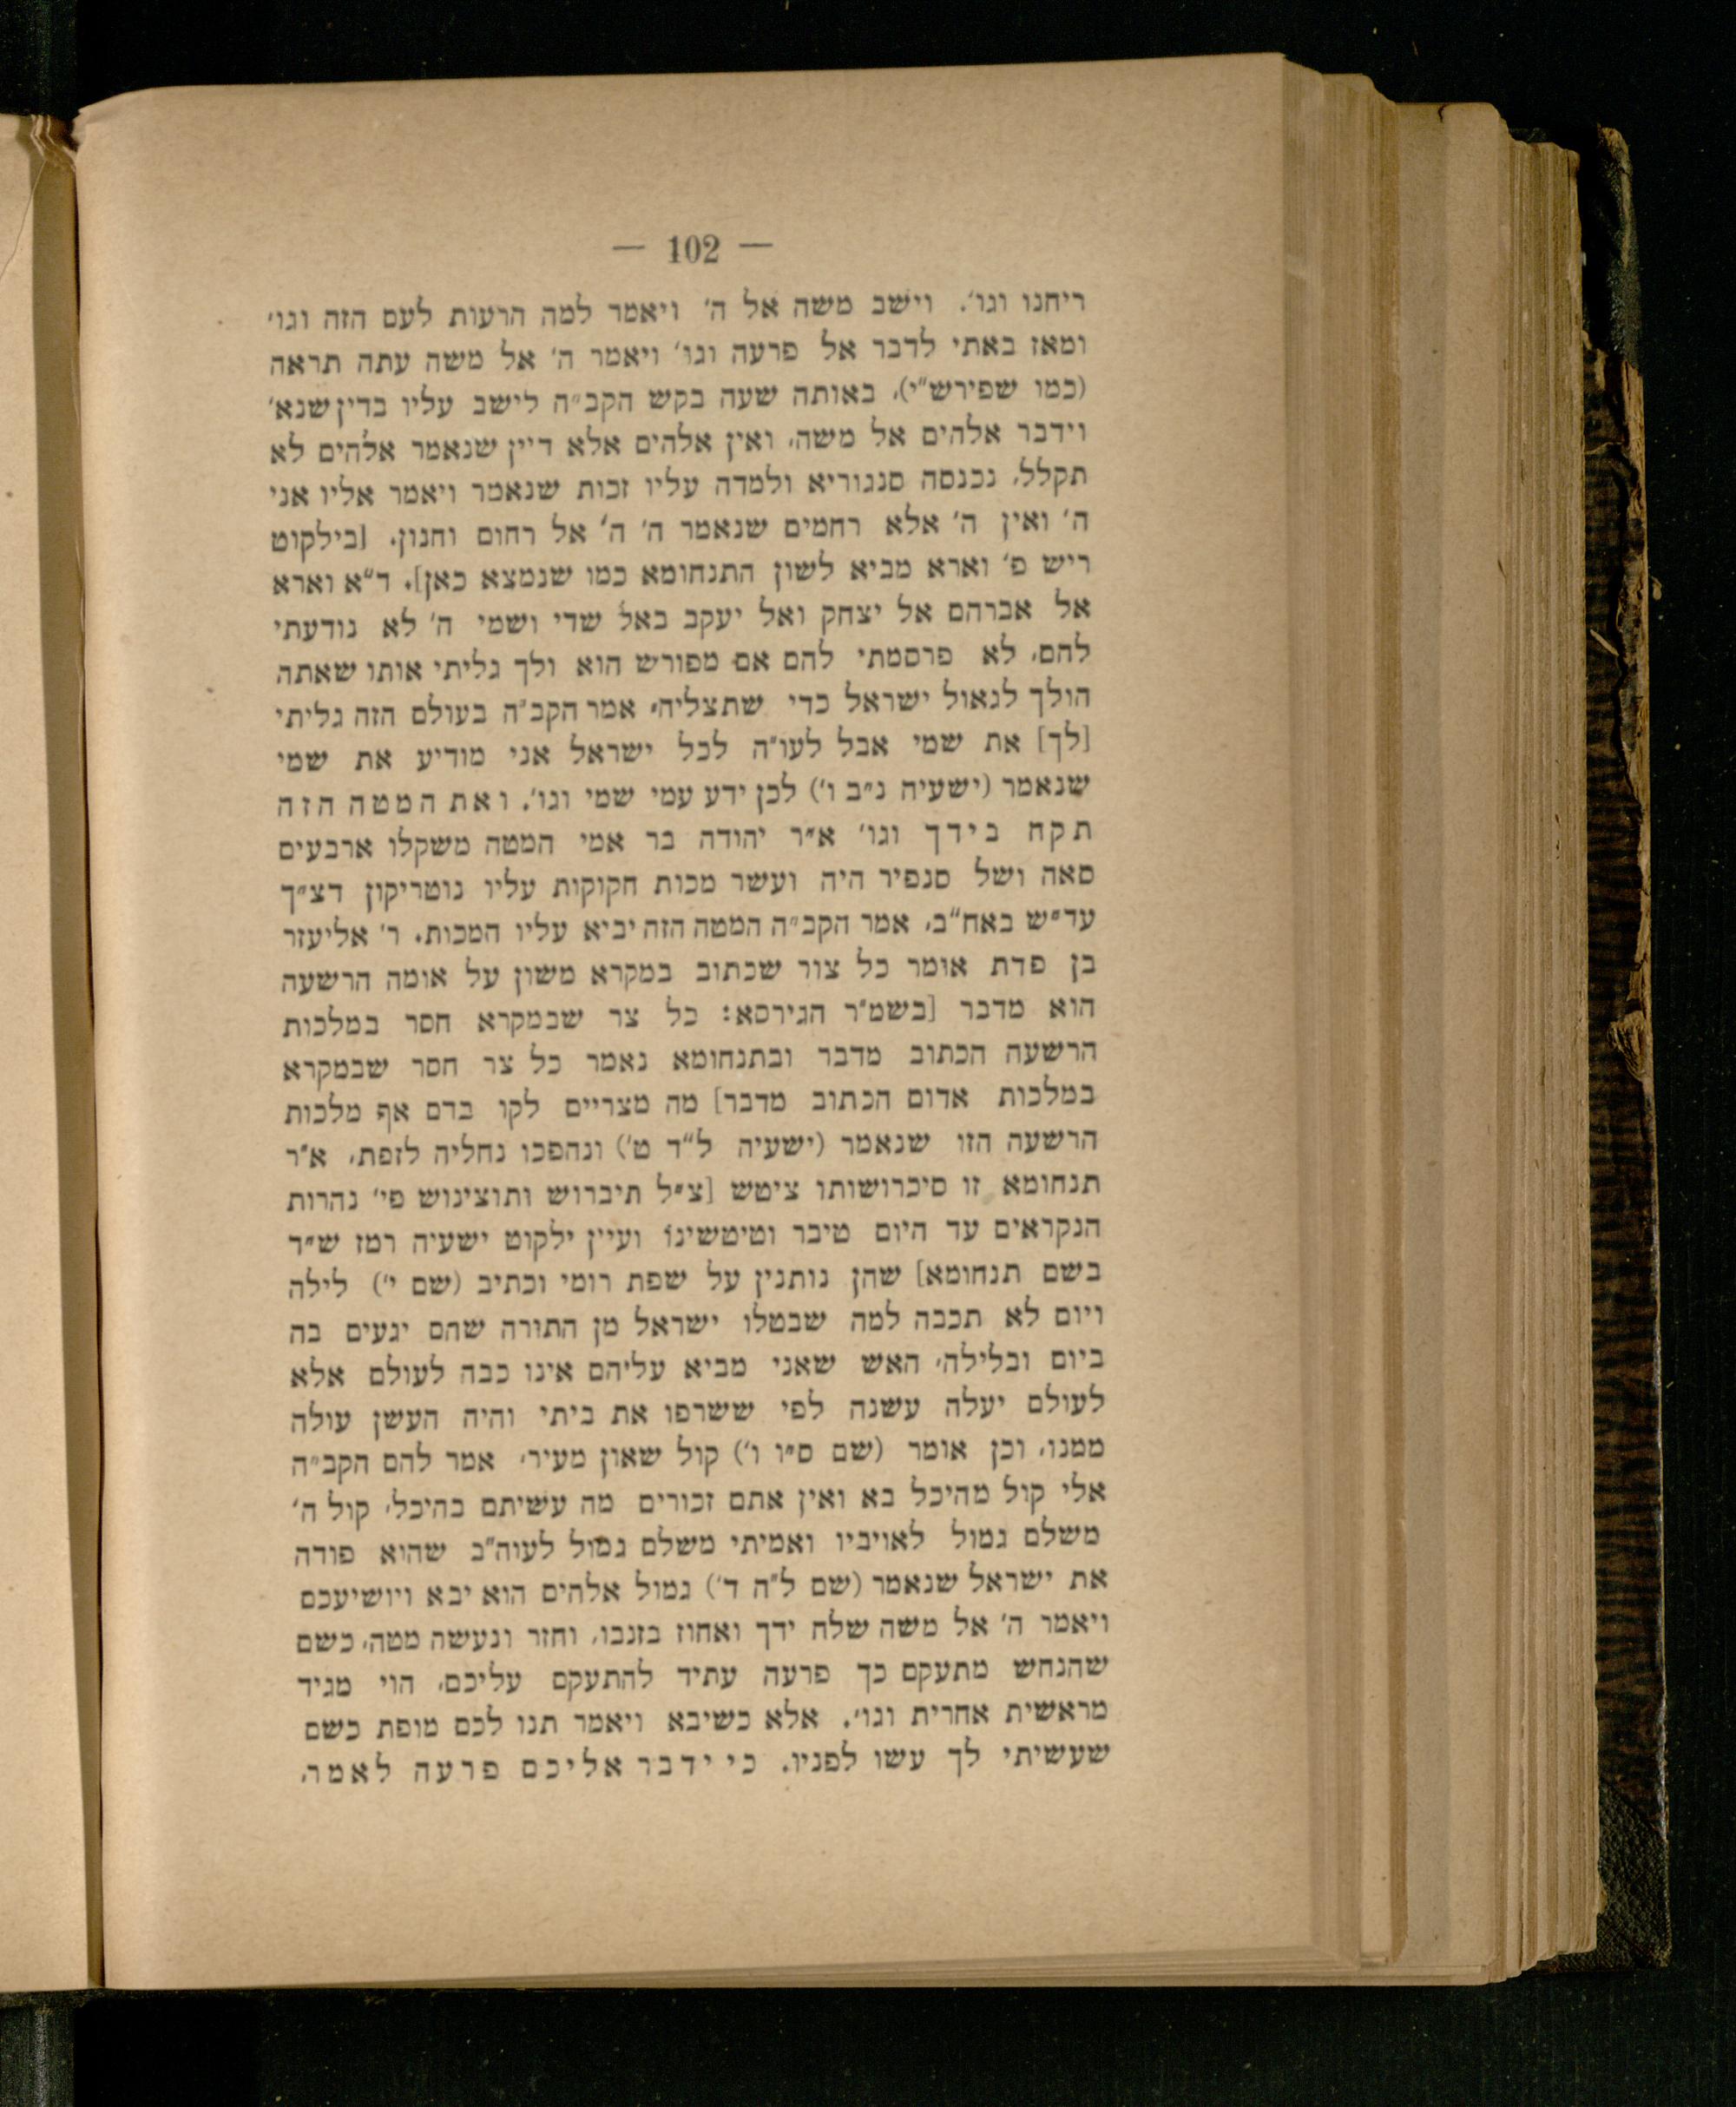 — 102 —
ריחנו וגו׳. וישב משה אל ה׳ ויאמר למה הרעות לעם הזה וגו׳
ומאז באתי לדבר אל פרעה וגו׳ ויאמר ה׳ אל משה עתה תראה
(כמו שפירש״י), באותה שעה בקש הקב״ה לישב עליו בדין שנא׳
וידבר אלהים אל משה, ואין אלהים אלא דיין שנאמר אלהים לא
תקלל, נכנסה סנגוריא ולמדה עליו זכות שנאמר ויאמר אליו אני
ה׳ ואין ה׳ אלא רחמים שנאמר ה׳ ה׳ אל רחום וחנון. [בילקוט
ריש פ׳ וארא מביא לשון התנחומא כמו שנמצא כאן]. ד״א וארא
אל אברהם אל יצחק ואל יעקב באל שדי ושמי ה׳ לא נודעתי
להם, לא פרסמתי להם אם מפורש הוא ולך גליתי אותו שאתה
הולך לגאול ישראל כדי שתצליח, אמר הקב״ה בעולם הזה גליתי
[לך] את שמי אבל לעו״ה לכל ישראל אני מודיע את שמי
שנאמר (ישעיה נ״ב ו׳) לכן ידע עמי שמי וגו׳. ואת המטה הזה
תקח בידך וגו׳ א״ר יהודה בר אמי המטה משקלו ארבעים
סאה ושל סנפיר היה ועשר מכות חקוקות עליו נוטריקון דצ״ך
עד״ש באח״ב, אמר הקב״ה המטה הזה יביא עליו המכות. ר׳ אליעזר
בן פדת אומר כל צור שכתוב במקרא משון על אומה הרשעה
הוא מדבר [בשמ״ר הגירסא: כל צר שבמקרא חסר במלכות
הרשעה הכתוב מדבר ובתנחומא נאמר כל צר חסר שבמקרא
במלכות אדום הכתוב מדבר] מה מצריים לקו בדם אף מלכות
הרשעה הזו שנאמר (ישעיה ל״ד ט׳) ונהפכו נחליה לזפת, א״ר
תנחומא זו סיכרושותו ציטש [צ״ל תיברוש ותוצינוש פי׳ נהרות
הנקראים עד היום טיבר וטיטשינו ועיין ילקוט ישעיה רמז ש״ד
בשם תנחומא] שהן נותנין על שפת רומי וכתיב (שם י׳) לילה
ויום לא תכבה למה שבטלו ישראל מן התורה שהם יגעים בה
ביום ובלילה, האש שאני מביא עליהם אינו כבה לעולם אלא
לעולם יעלה עשנה לפי ששרפו את ביתי והיה העשן עולה
ממנו, וכן אומר (שם ס״ו ו׳) קול שאון מעיר, אמר להם הקב״ה
אלי קול מהיכל בא ואין אתם זכורים מה עשיתם בהיכל, קול ה׳
משלם גמול לאויביו ואמיתי משלם גמול לעוה״ב שהוא פודה
את ישראל שנאמר (שם ל״ה ד׳) גמול אלהים הוא יבא ויושיעכם
ויאמר ה׳ אל משה שלח ידך ואחוז בזנבו, וחזר ונעשה מטה, כשם
שהנחש מתעקם כך פרעה עתיד להתעקם עליכם, הוי מגיד
מראשית אחרית וגו׳. אלא כשיבא ויאמר תנו לכם מופת כשם
שעשיתי לך עשו לפניו. כי ידבר אליכם פרעה לאמר,